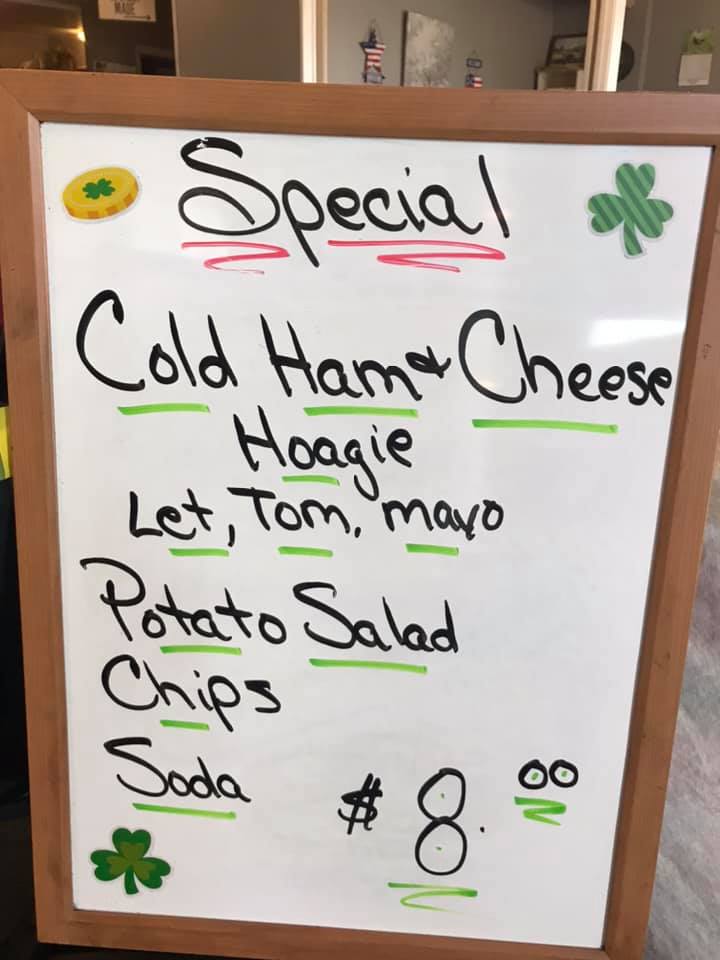 MADE
Special
Cold Ham & Cheese
Hoagie
Let, Tom. mayo
Potato Salad
Chips
Soda
$8.00